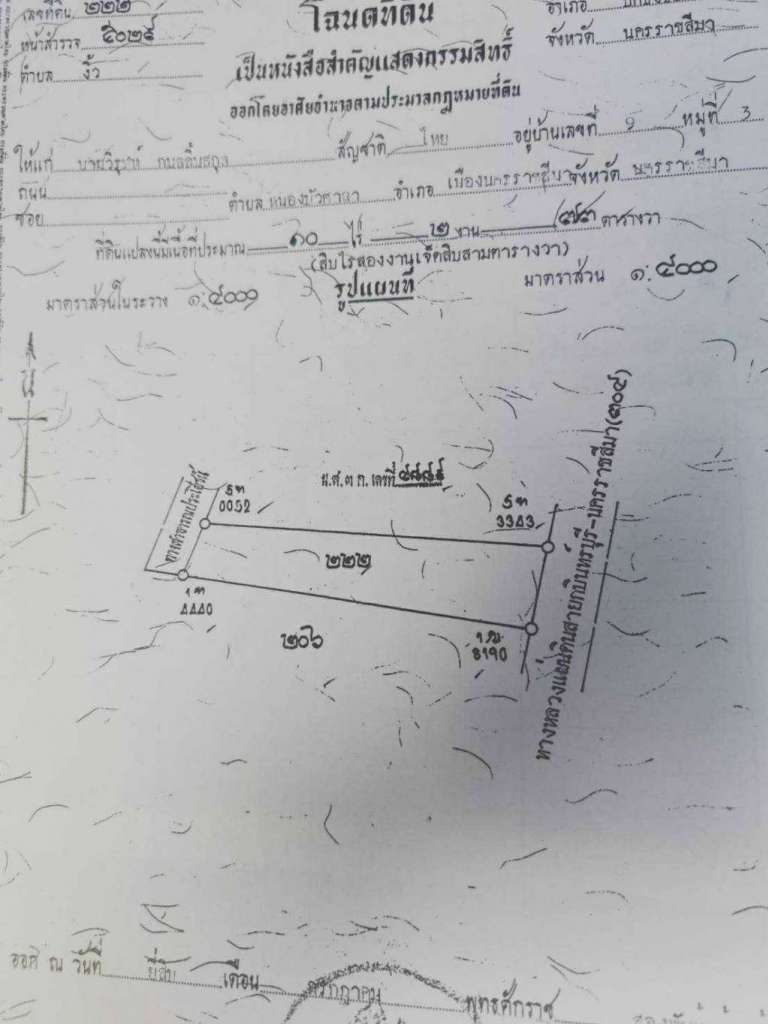 เลขที่ดิน ๒๒๒
โฉนดที่ดิน
อำเภอ
หน้าสำรวจ ๕๐๒๕
เป็นหนังสือสำคัญแสดงกรรมสิทธิ์
จังหวัด นครราชสีมา
ตำบล งิ้ว
ออกโดยอาศัยอำนาจตามประมวลกฎหมายที่ดิน
ให้แก่ สัญชาติ ไทย อยู่บ้านเลขที่ ๑ หมู่ที่ 3
ถนน
ซอย ตำบล หนองบัวศาลา อำเภอ เมืองนครราชสีมา จังหวัด นครราชสีมา
ที่ดินแปลงนี้มีเนื้อที่ประมาณ ๑๐ ไร่ ๒ งาน ๗๓ ตารางวา
(สิบไร่สองงานเจ็ดสิบสามตารางวา)
มาตราส่วนในระวาง ๑:๔๐๐๐
รูปแผนที่
มาตราส่วน ๑:๔๐๐๐
น
ทางสาธารณประโยชน์
0052
น.ส.๓ ก. เลขที่
3343
๒๒๒
4440
๒๐๖
8190
ทางหลวงแผ่นดินสายกบินทร์บุรี-นครราชสีมา(๓๐๔)
ออก ณ วันที่ ยี่สิบ เดือน กรกฎาคม พุทธศักราช